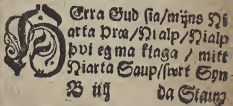 HErra Gud sia/mijns Hi
arta Þræ/Hialp/Hialp
þvi eg ma klaga / mitt
Hiarta Saup/svort Syn
B iij da Staup